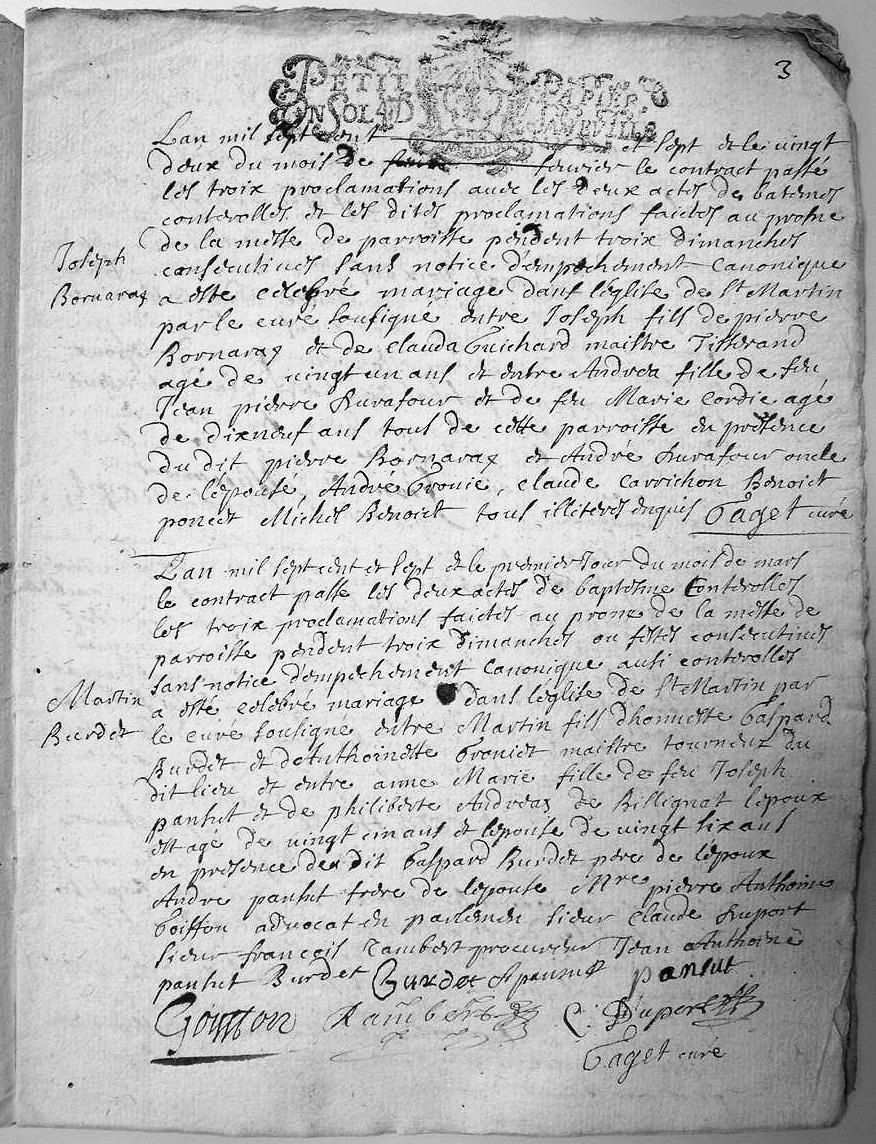 3
PETIT PAPIER
UN SOL 4 D LA FEUILLE
Lan mil sept cent et sept et le vingt
deux du mois de fevrier le contract passé
les troix proclamations avec les deux actes de batemes
conterolles et les dites proclamations faictes au prosne
de la messe de parroisse pendent troix dimanches
consecutives sans notice d'empechement canonique
Joseph
Bornarax
a esté celebré mariage dans l'église de St Martin
par le curé sousigné entre Joseph fils de pierre
Bornarax et de clauda Guichard maistre Tisserand
agé de vingt un ans et entre Andrea fille de feu
Jean pierre Durafour et de feu Marie cordie agé
de dixneuf ans tous de cette parroisse en présence
du dit pierre Bornarax et André Durafour oncle
de l'épouse, Andre Gronie, claude carrichon Benoict
poncet Michel Benoict tous illiteres enquis Taget curé
Lan mil sept cent et sept et le premier Jour du mois de mars
le contract passe les deux actes de baptesme conterolles
les troix proclamations faictes au prone de la messe de
parroisse pendent troix dimanches ou festes consecutives
sans notice d'empechement canonique ausi conterolles
Martin
Burdet
a esté celebré mariage dans l'église de St Martin par
le curé sousigné entre Martin fils d'honneste Gaspard
Burdet et de Anthoinette Gronier maistre tourneur du
dit lieu et entre anne Marie fille de feu Joseph
pansut et de philiberte Andreax de Billignat l'epoux
est agé de vingt cin ans et l'epouse de vingt six ans
en présence du dit Gaspard Burdet pere de l'epoux
Andre pansut frere de l'epouse Mre pierre Anthoine
Goiffon advocat en parlemen sieur claude Duport
sieur francois Rambert procureur Jean Anthoine
pansut Burdet Burdet A pansut pansut
Goiffon Rambert C. Duport
Taget curé